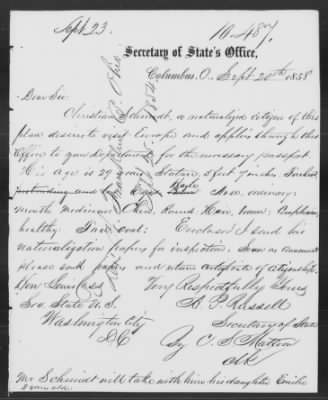 Sept 23.
No. 487,
Secretary of State's Office,
Columbus, O., Sept. 20th 1858
Dear Sir
Christian Schmidt, a naturalized citizen of this
place desires to visit Europe and applies through this
Office to your Department for the necessary passport.
His age is 29 years Stature 5 feet 7 inches Forehead
and Eyes Hazle Nose ordinary
mouth medium Chin Round Hair, brown: Complexion
healthy Face oval: Enclosed I send his
naturalization papers for inspection. Soon as convenient
please send papers and return certificate of citizenship.
Hon Lewis Cass Very Respectfully Yours
Sec. State U.S. A. P. Russell
Washington City Secretary of State
D.C By C. S. Mattoon
Clk
Mr Schmidt will take with him his daughter Emilie